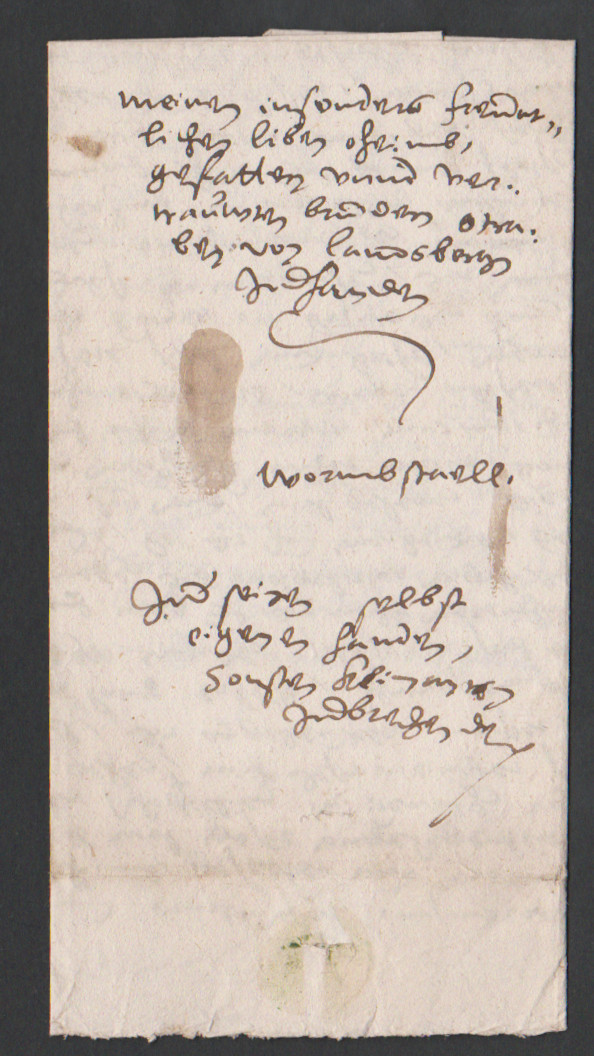 meinen insonders freundt„
lichen liben oheimb,
gefatter vnnd ver:
trauwten bruder
ben von landsbergh
Ind handen
wormbstaell.
Ind seinen selbst
eigenen handen,
sonsten niemantz
Indbrechen